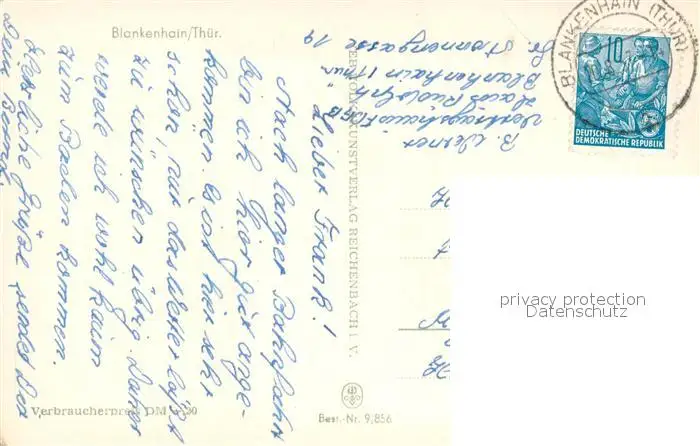 Blankenhain/Thür.
Lieber Frank!
Nach langer Bahnfahrt
bin ich hier gut ange-
kommen. Es ist hier sehr
schön, nur das Wetter läßt
zu wünschen übrig. Daher
werde ich wohl kaum
zum Baden kommen.
Herzliche Grüße sendet Dir
Dein
Verbraucherpreis DM
Best.-Nr. 9,856
KUNSTVERLAG REICHENBACH i. V.
B. Werner
Vertragshaus FDGB
Rudolph
Blankenhain/Thür
19
BLANKENHAIN (THÜR)
10
DEUTSCHE
DEMOKRATISCHE REPUBLIK
privacy protection
Datenschutz